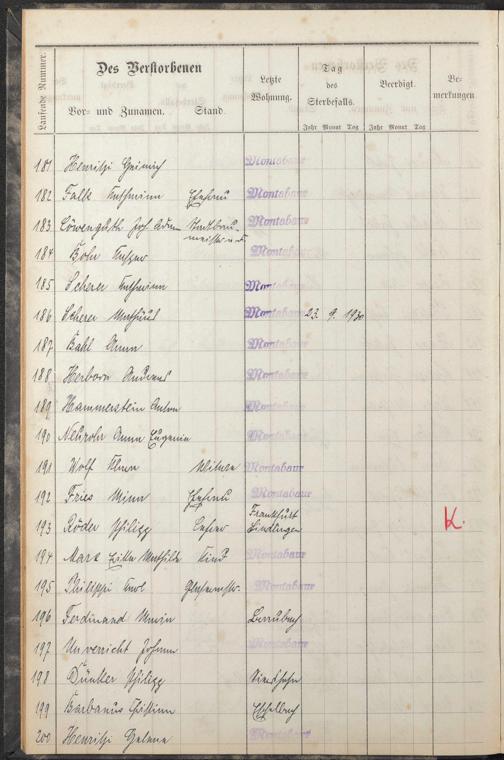 Laufende Nummer.
Des Verstorbenen
Vor- und Zunamen. Stand.
Letzte Wohnung.
Tag des Sterbefalls.
Jahr Monat Tag
Beerdigt.
Jahr Monat Tag
Be-
merkungen
181 Henritzi Heinrich Montabaur
182 Falk Ehefrau Montabaur
183 Löwenguth Joh Adam Stadtbau- Montabaur
meister a.D.
184 Bohr Montabaur
185 Scherer Montabaur
186 Scherer Montabaur 23. 9. 1930
187 Bahl Anna Montabaur
188 Herborn Andreas Montabaur
189 Hammerstein Anton Montabaur
190 Neuroht Anna Eugenia Montabaur
191 Wolf Witwe Montabaur
192 Fries Minna Ehefrau Montabaur
193 Röder Philipp Lehrer Frankfurt
Sindlingen K.
194 Marx Mathilde Kind Montabaur
195 Philippi Karl Montabaur
196 Ferdinand Maria
197 Unverricht Johann Montabaur
198 Dünker Philipp
199 Barbanus Christian Eschelbach
200 Henritzi Helena Montabaur